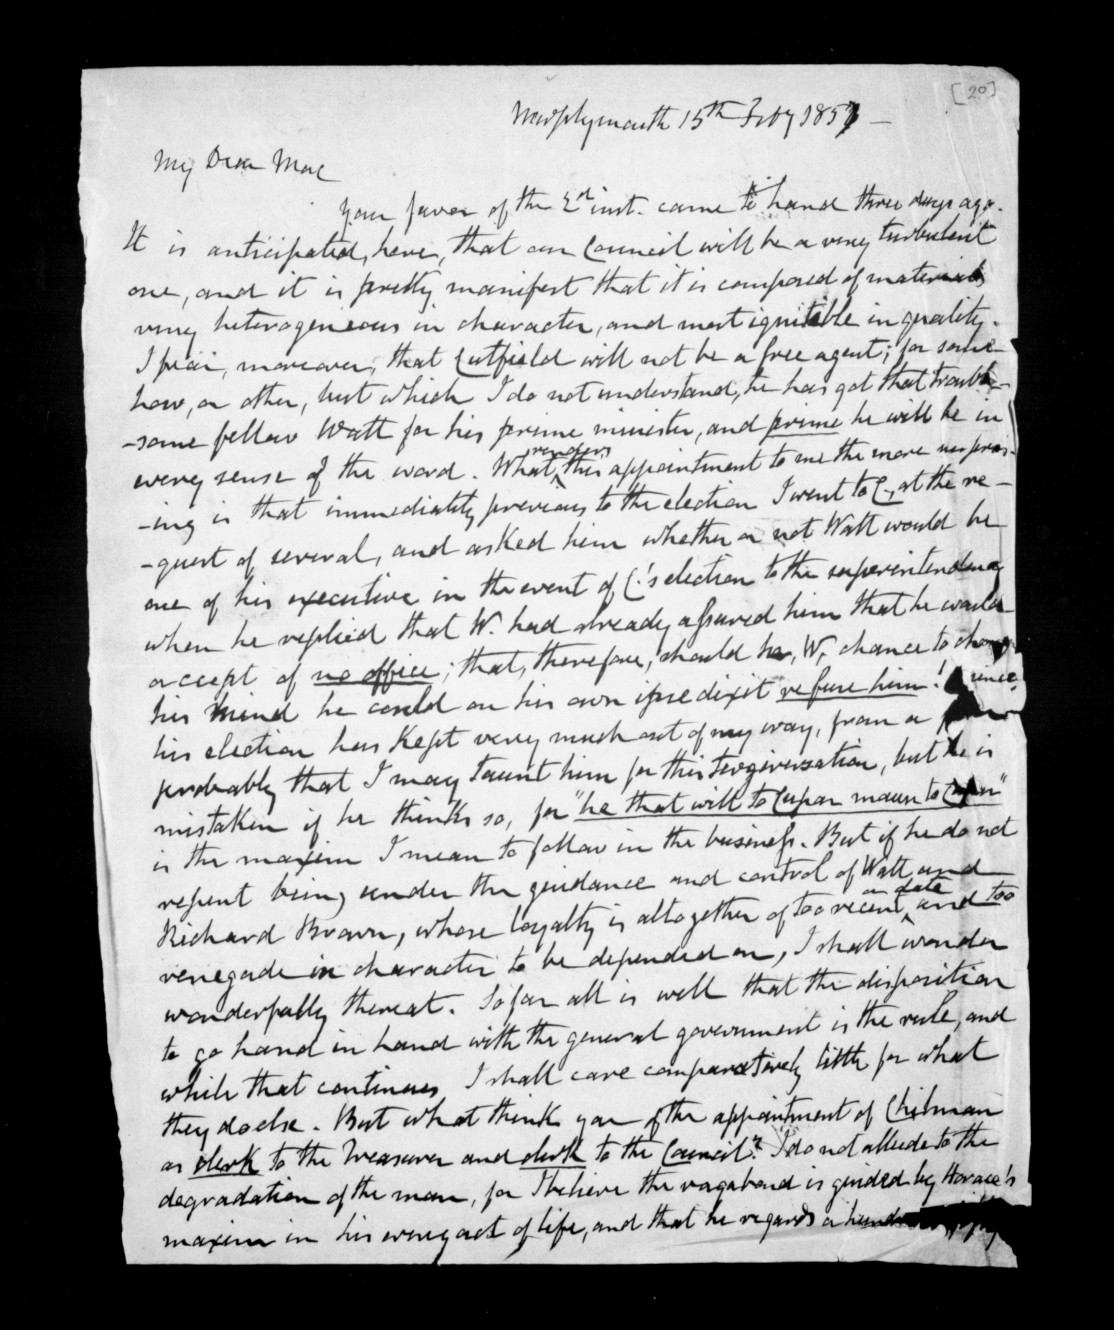 [20]
Newplymouth 15th Feby 1857 -
My Dear Mac
Your favor of the 2d inst. came to hand three days ago.
It is anticipated, here, that our Council will be a very turbulent
one, and it is pretty manifest that it is composed of materials
very heterogeneous in character, and most ignitible in quality.
I fear, moreover, that Cutfield will not be a free agent; for some-
how, or other, but which I do not understand, he has got that trouble-
-some fellow Watt for his prime minister, and prime he will be in
every sense of the word. What renders this appointment to me the more surpris-
-ing is that immediately previous to the election I went to C, at the re-
-quest of several, and asked him whether or not Watt would be
one of his executive in the event of C's election to the superintendency
when he replied that W. had already assured him that he would
accept of no office; that, therefore, should he, W, chance to change
his mind he could on his own ipse dixit refuse him! since
his election has kept very much out of my way, from a
probably that I may taunt him for this tergiversation, but he is
mistaken if he thinks so, for "he that will to Cupar maun to Cupar"
is the maxim I mean to follow in the business. But if he do not
repent being under the guidance and control of Watt and
Richard Brown, whose loyalty is altogether of too recent a date and too
renegade in character to be depended on, I shall wonder
wonderfully thereat. So far all is well that the disposition
to go hand in hand with the general government is the rule, and
while that continues I shall care comparatively little for what
they do else. But what think you of the appointment of Chilman
as clerk to the Treasurer and clerk to the Council? I do not allude to the
degradation of the man, for I believe the vagabond is guided by Horace's
maxim in his every act of life, and that he regards a